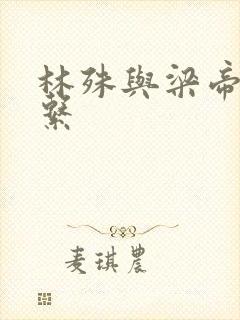 林殊與梁帝
繫
麦琪農